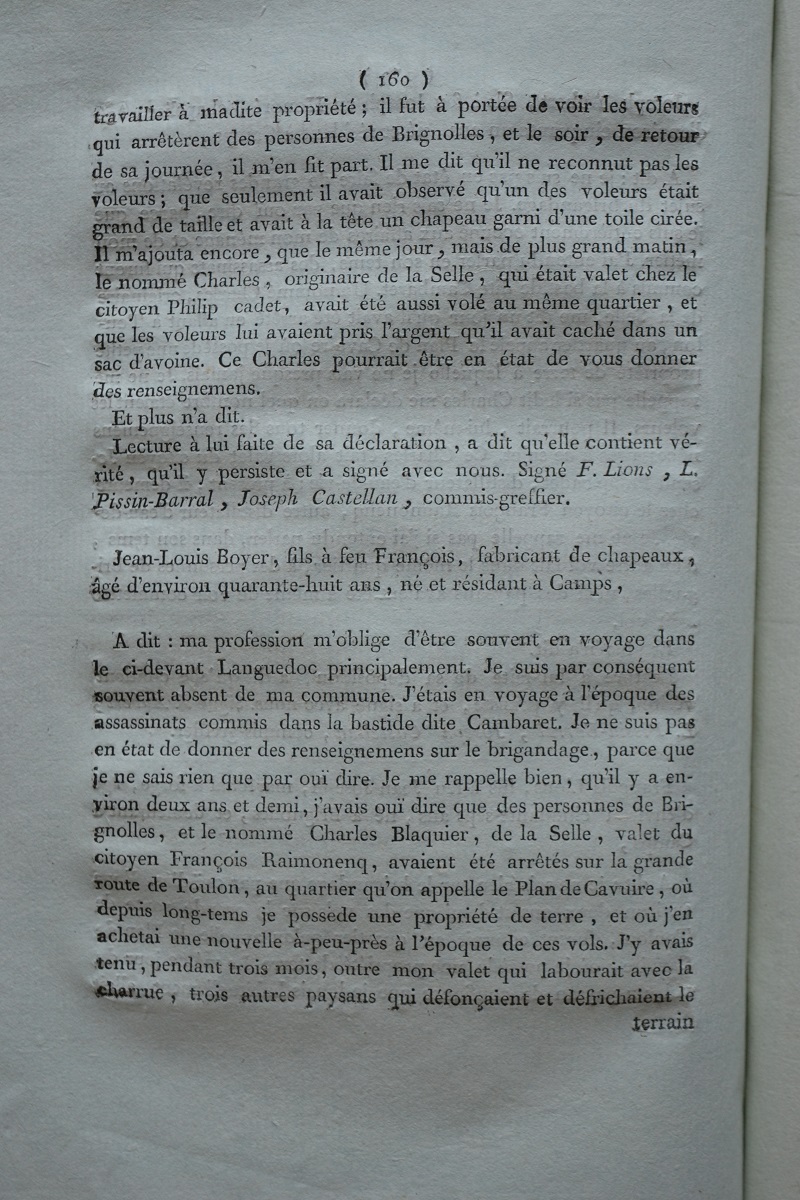 ( 160 )
travailler à madite propriété ; il fut à portée de voir les voleurs
qui arrêtèrent des personnes de Brignolles , et le soir , de retour
de sa journée , il m'en fit part. Il me dit qu'il ne reconnut pas les
voleurs ; que seulement il avait observé qu'un des voleurs était
grand de taille et avait à la tête un chapeau garni d'une toile cirée.
Il m'ajouta encore , que le même jour , mais de plus grand matin ,
le nommé Charles , originaire de la Selle , qui était valet chez le
citoyen Philip cadet , avait été aussi volé au même quartier , et
que les voleurs lui avaient pris l'argent qu'il avait caché dans un
sac d'avoine. Ce Charles pourrait être en état de vous donner
des renseignemens.
Et plus n'a dit.
Lecture à lui faite de sa déclaration , a dit qu'elle contient vé-
rité , qu'il y persiste et a signé avec nous. Signé F. Lions , L.
Pissin-Barral , Joseph Castellan , commis-greffier.
Jean-Louis Boyer , fils à feu François , fabricant de chapeaux ,
âgé d'environ quarante-huit ans , né et résidant à Camps ,
A dit : ma profession m'oblige d'être souvent en voyage dans
le ci-devant Languedoc principalement. Je suis par conséquent
souvent absent de ma commune. J'étais en voyage à l'époque des
assassinats commis dans la bastide dite Cambaret. Je ne suis pas
en état de donner des renseignemens sur le brigandage , parce que
je ne sais rien que par ouï dire. Je me rappelle bien , qu'il y a en-
viron deux ans et demi , j'avais ouï dire que des personnes de Bri-
gnolles , et le nommé Charles Blaquier , de la Selle , valet du
citoyen François Raimonenq , avaient été arrêtés sur la grande
route de Toulon , au quartier qu'on appelle le Plan de Cavuire , où
depuis long-tems je possède une propriété de terre , et où j'en
achetai une nouvelle à-peu-près à l'époque de ces vols. J'y avais
tenu , pendant trois mois , outre mon valet qui labourait avec la
charrue , trois autres paysans qui défonçaient et défrichaient le
terrain